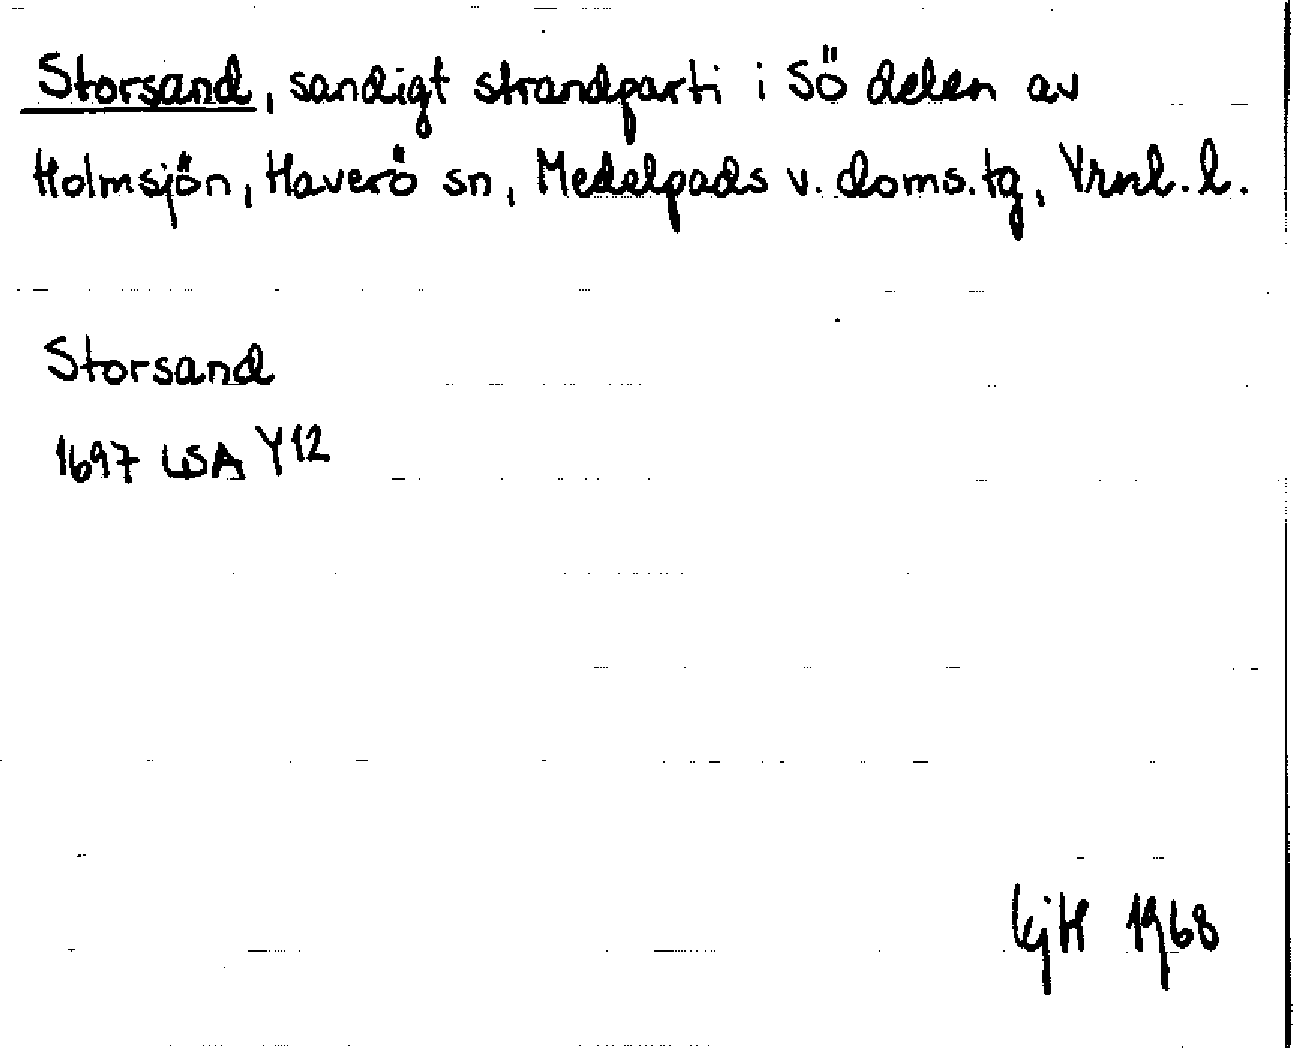 Storsand, sandigt strandparti i Sö delen av
Holmsjön, Haverö sn, Medelpads v. doms.tg, Vrnl. l.
Storsand
1697 LSA Y12
1968